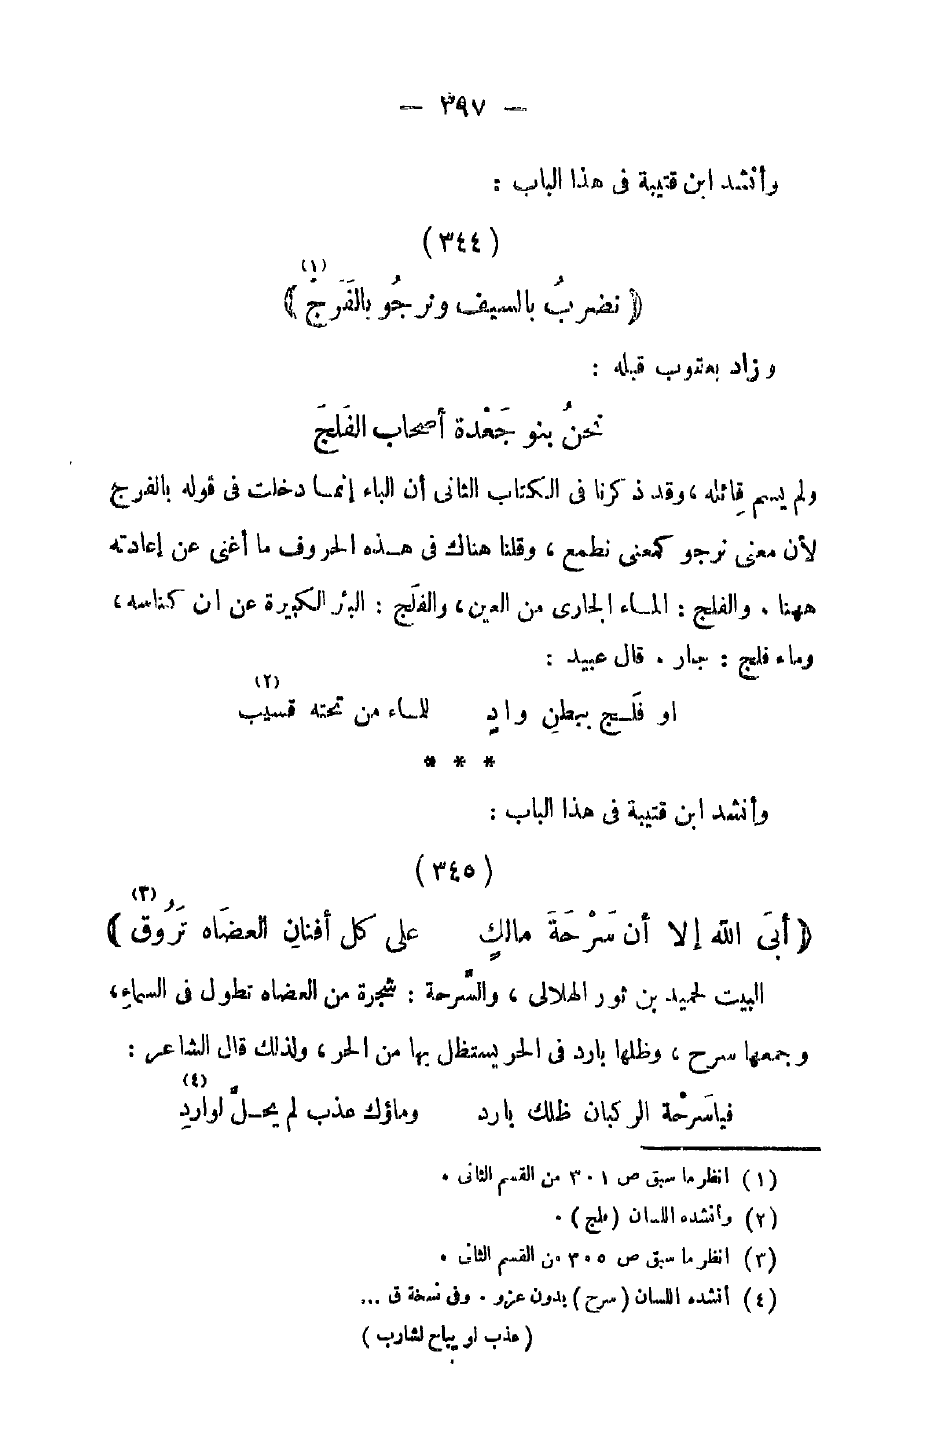 — ٣٩٧ —
وأنشد ابن قتيبة فى هذا الباب :
(٣٤٤)
﴿ نضربُ بالسيف ونرجُو بالفَرَجْ ﴾ (١)
وزاد يعقوب قبله :
نحنُ بنو جَعْدة أصحاب الفَلَجَ
ولم يسم قِائله ، وقد ذكرنا فى الكتاب الثانى أن الباء إنمـا دخلت فى قوله بالفرج
لأن معنى نرجو كمعنى نطمع ، وقلنا هناك فى هـذه الحروف ما أغنى عن إعادته
ههنا . والفلج : المـاء الجارى من العين ، والفَلَج : البئر الكبيرة عن ابن كناسه ،
وماء فلج : جار . قال عبيد :
او فَلَـج ببطنِ وادٍ للمـاء من تحته قسيب (٢)
* * *
وأنشد ابن قتيبة فى هذا الباب :
(٣٤٥)
﴿ أبَى الله إلا أن سَرْحَةَ مالكٍ على كل أفنانِ العضَاه تَرَوُق ﴾ (٣)
البيت لحميد بن ثور الهلالى ، والسَّرحة : شجرة من العضاه تطول فى السماءِ ،
وجمعها سرح ، وظلها بارد فى الحر يستظل بها من الحر ، ولذلك قال الشاعر :
فياسَرْحْة الركبان ظلك بارد وماؤك عذب لم يحـلَّ لواردِ (٤)
(١) انظر ما سبق ص ٣٠١ من القسم الثانى .
(٢) وأنشده اللسان (فلج) .
(٣) انظر ما سبق ص ٣٠٥ من القسم الثانى .
(٤) أنشده اللسان (سرح) بدون عزو . وفى نسخة ق ...
(عذب لو يباح لشارب)